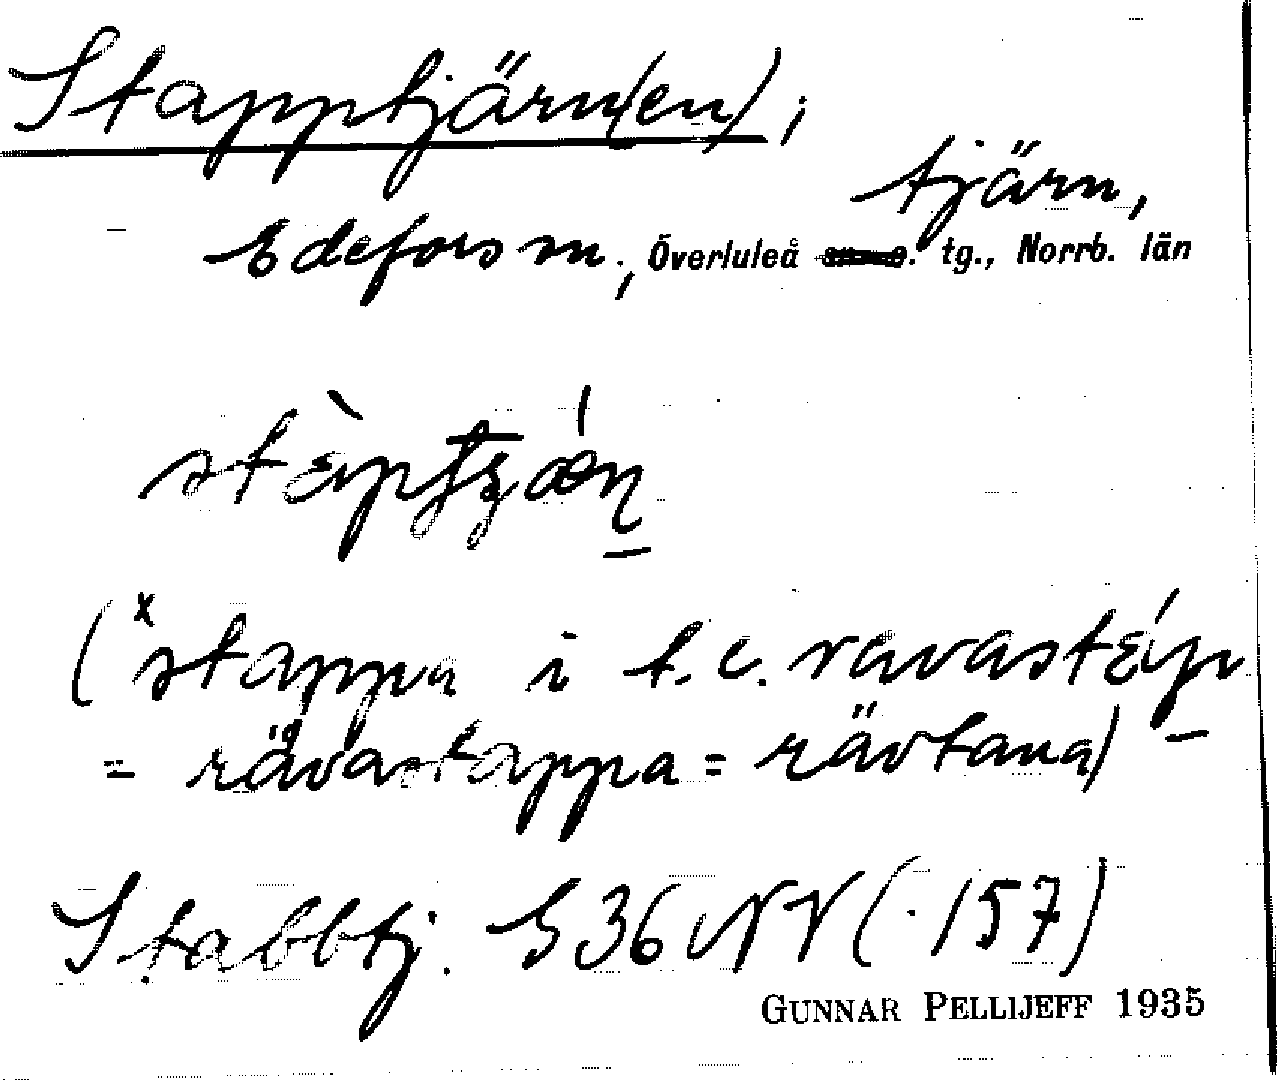 Stapptjärn(en);
tjärn,
Edefors sn., Överluleå tg., Norrb. län
(*stappa i t.e. ravastɛ́p
= rävastappa = rävtana) –
Stabbtj. S 36 NV (: 157)
GUNNAR PELLIJEFF 1935